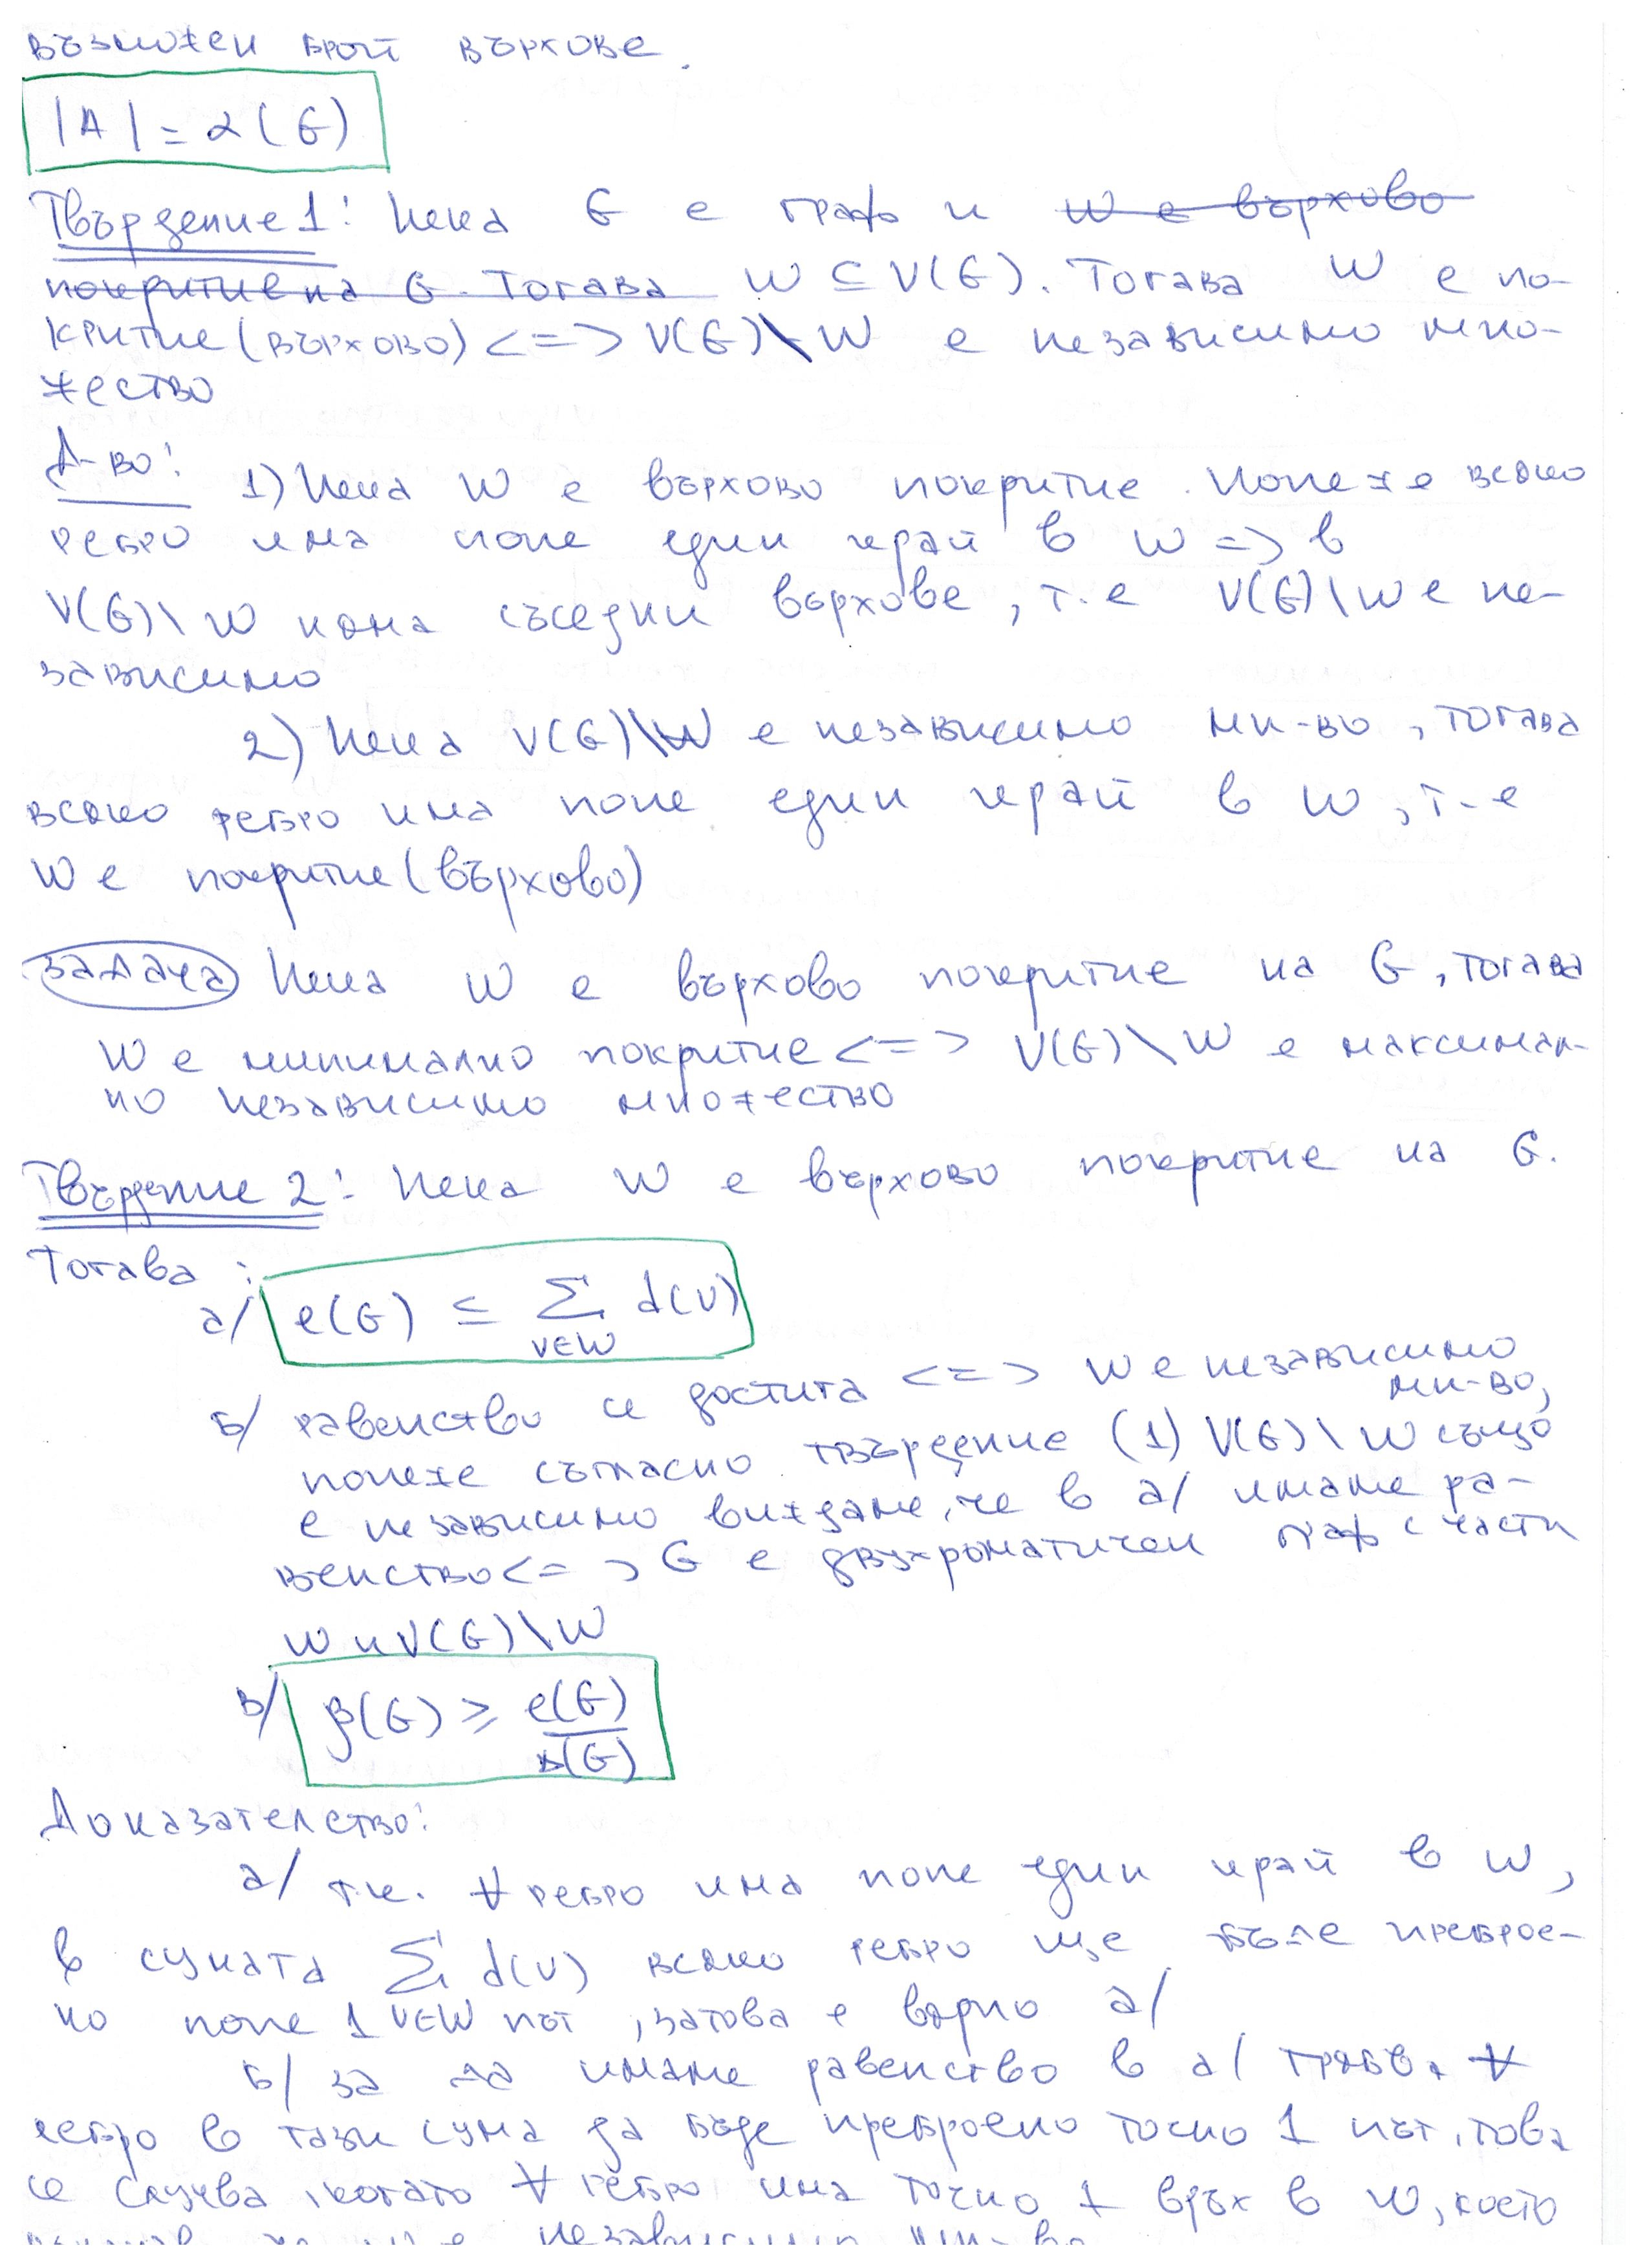 възможен брой върхове.
|A| = α(G)
Твърдение 1: Нека G е граф и ~~W е върхово~~
~~покритие на G. Тогава~~ W ⊆ V(G). Тогава W е по-
критие (върхово) <=> V(G)\W е независимо мно-
жество
Д-во:
1) Нека W е върхово покритие. Понеже всяко
ребро има поне един край в W => в
V(G)\W няма съседни върхове, т.е V(G)\W е не-
зависимо
2) Нека V(G)\W е независимо мн-во, тогава
всяко ребро има поне един край в W, т.е
W е покритие (върхово)
Задача Нека W е върхово покритие на G, тогава
W е минимално покритие <=> V(G)\W е максимал-
но независимо множество
Твърдение 2: Нека W е върхово покритие на G.
Тогава:
а/ e(G) ≤ Σ d(v)
v∈W
б/ равенство се достига <=> W е независимо
мн-во,
понеже съгласно твърдение (1) V(G)\W също
е независимо виждаме, че в а/ имаме ра-
венство <=> G е двухроматичен граф с части
W и V(G)\W
в/ β(G) ≥ e(G)/Δ(G)
Доказателство:
а/ т.к. ∀ ребро има поне един край в W,
в сумата Σ d(v) всяко ребро ще бъде преброе-
но поне 1 v∈W път, затова е вярно а/
б/ за да имаме равенство в а/ трябва ∀
ребро в тази сума да бъде преброено точно 1 път, това
се случва, когато ∀ ребро има точно 1 връх в W, което
независимо мн-во